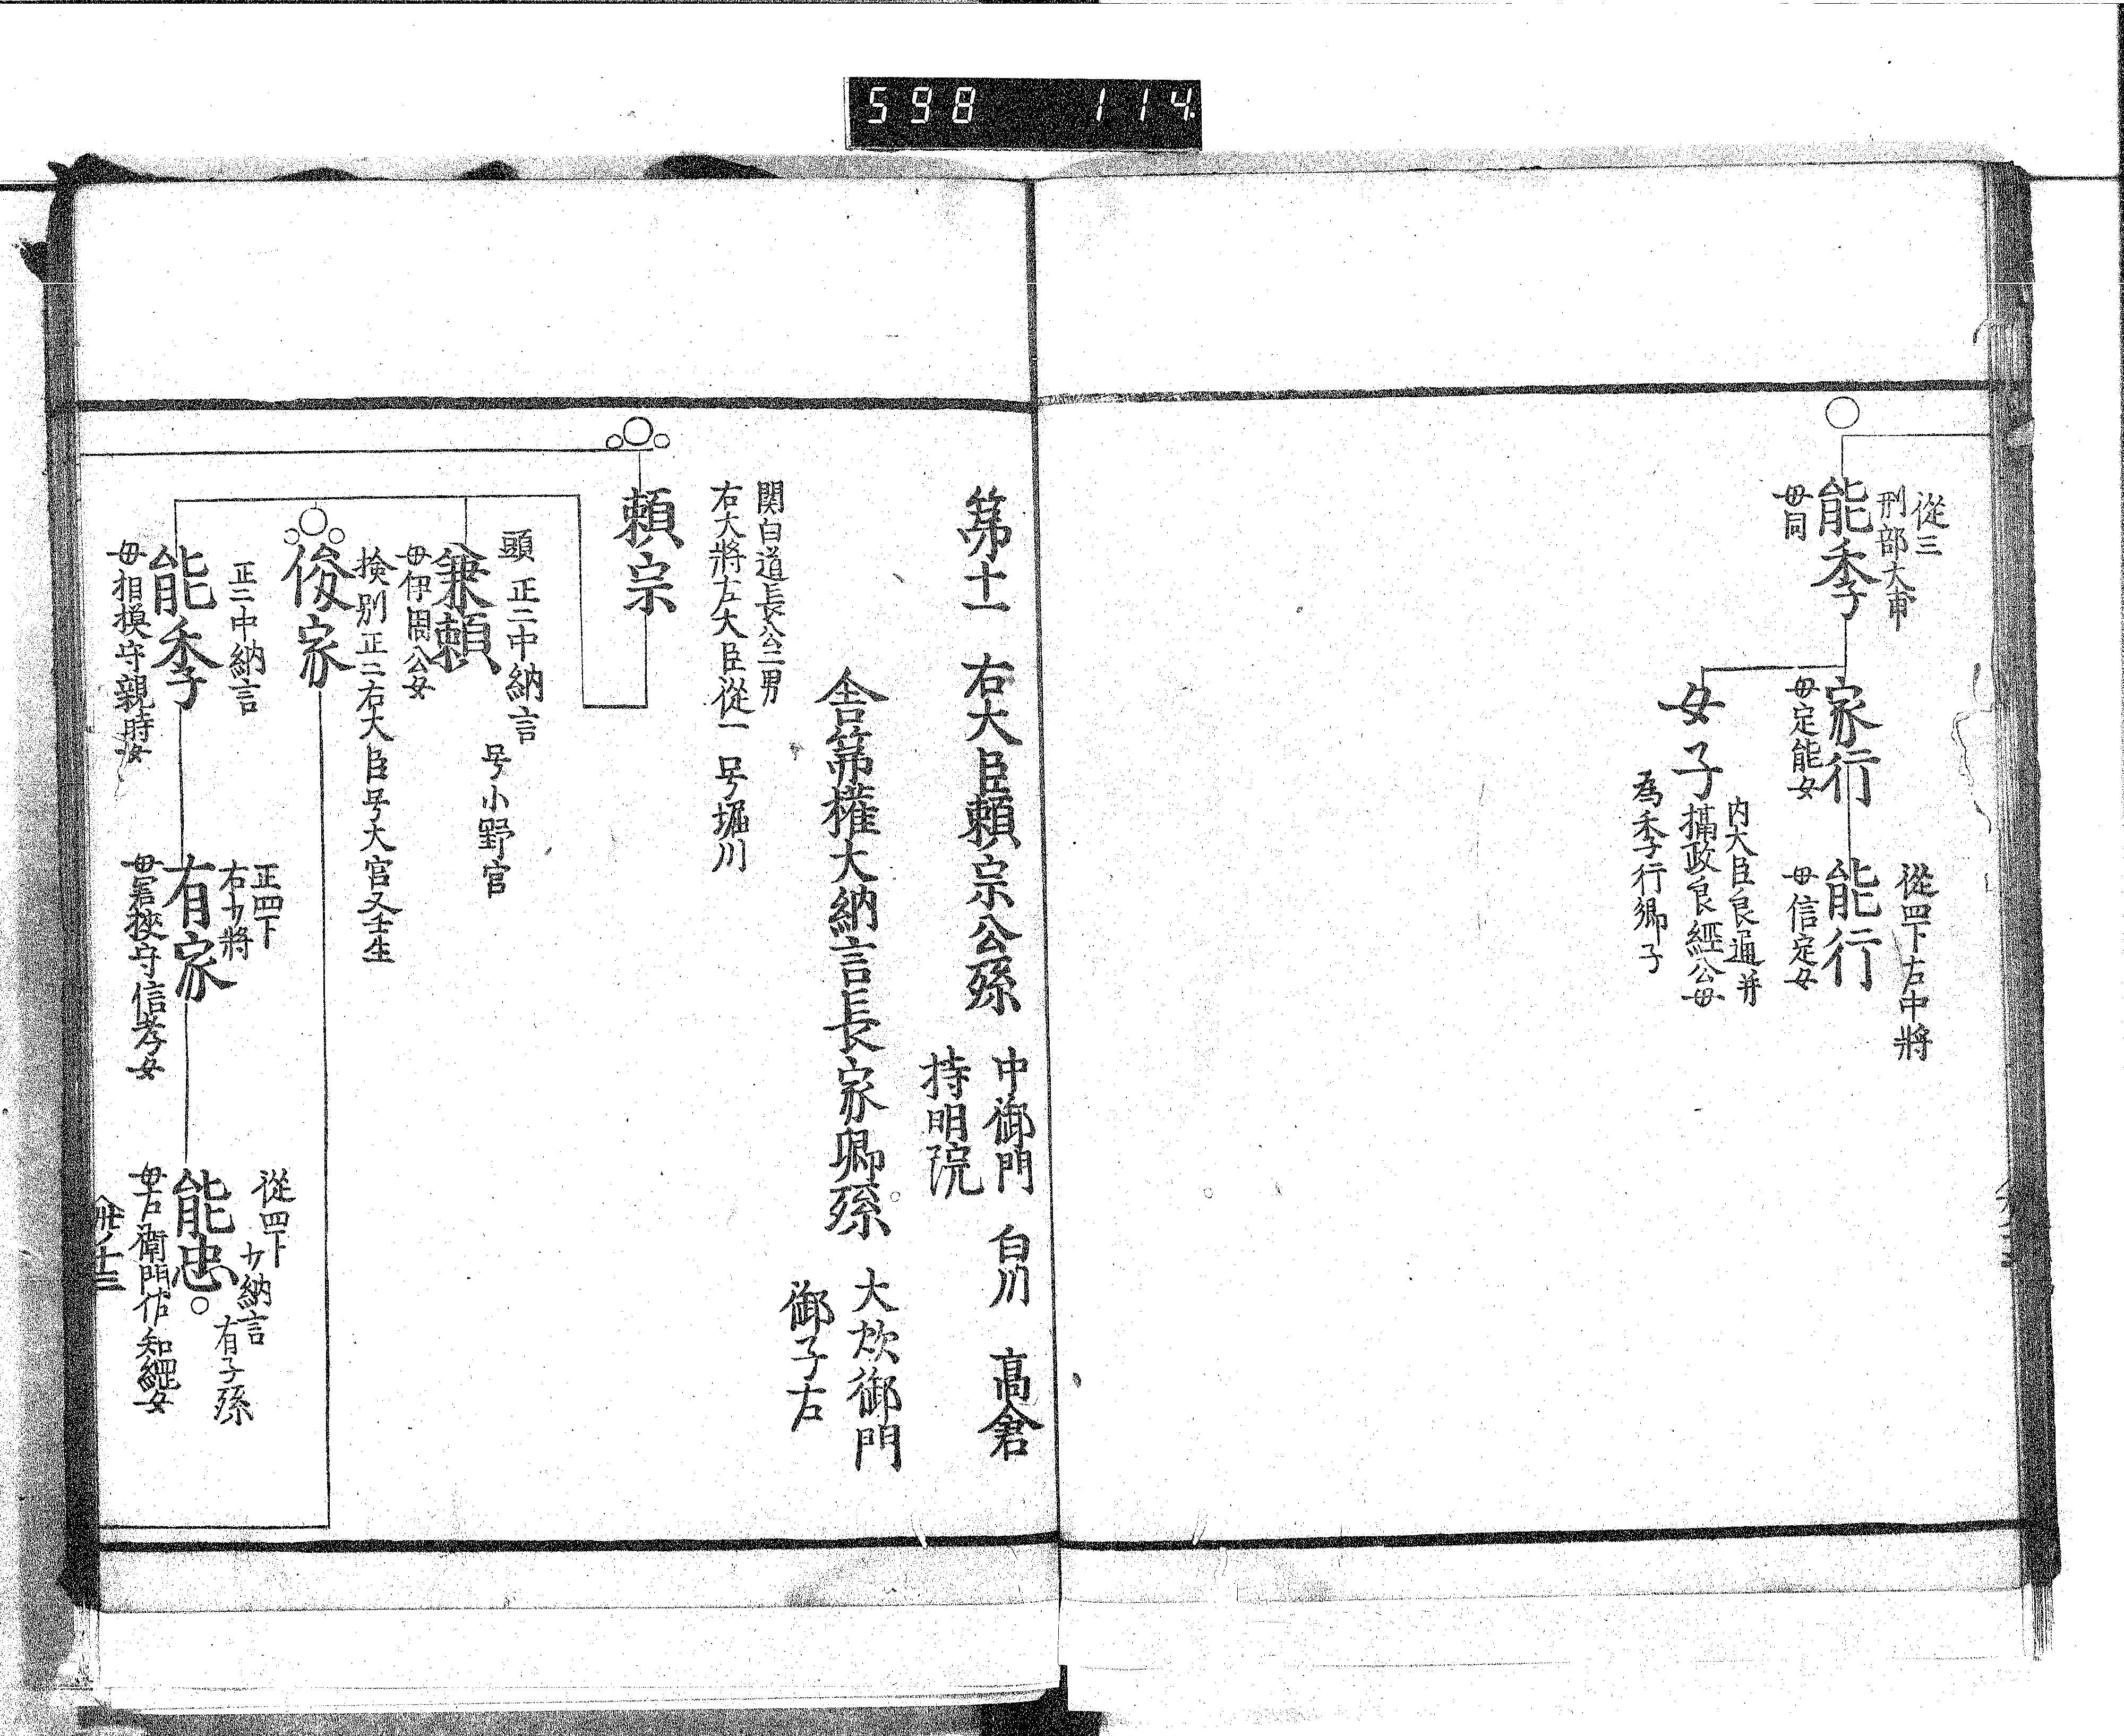 598 114
從三
刑部大輔
能季
母同
家行
母定能女
從四下右中將
能行
母信定女
女子
内大臣良通并
攝政良經公母
為季行卿子
第十一 右大臣頼宗公孫 中御門 白川 高倉
持明院
舎第權大納言長家卿孫 大炊御門
御子右
関白道長公二男
右大將右大臣從一 号堀川
頼宗
頭 正二中納言
号小野宮
兼頼
母伊周公女
撿別正二右大臣号大宮又壬生
俊家
正二中納言
能季
母相摸守親時女
正四下
右少將
有家
母若狹守信孝女
從四下
少納言
有子孫
能忠
母右衛門佐知經女